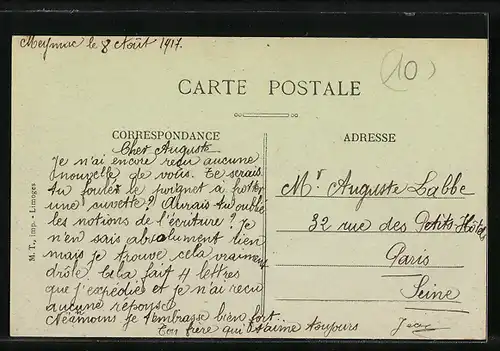 Meymac le 8 Août 1917.
(10)
CARTE POSTALE
CORRESPONDANCE
ADRESSE
Cher Auguste
Je n'ai encore reçu aucune
nouvelle de vous. Te serais
tu foulé le poignet a frotter
une cuvette? Aurais tu oublié
les notions de l'écriture? Je
n'en sais absolument rien
mais je trouve cela vraiment
drôle. Cela fait 4 lettres
que j'expédie et je n'ai reçu
aucune réponse.
Néamoins je t'embrasse bien fort.
Ton frère qui t'aime toujours
Mr Auguste Labbe
32 rue des Petits-Hôtels
Paris
Seine
M. T., imp. - Limoges